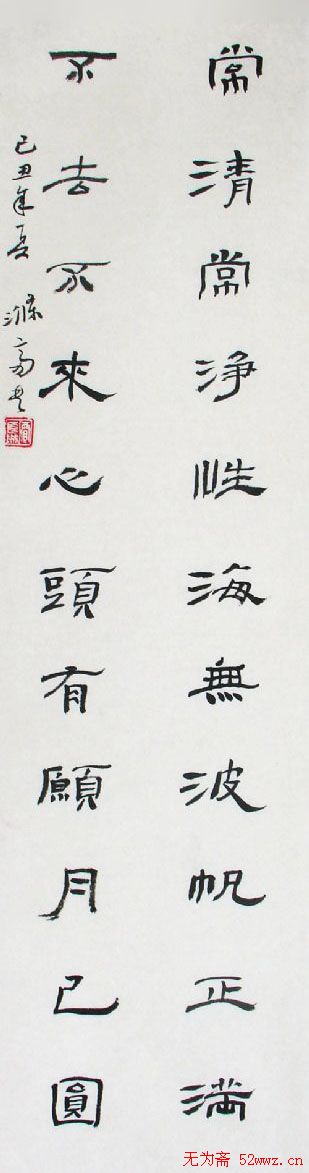 常清常浄性海無波帆正满
不去不來心頭有願月已圓
己丑年夏 滌斋书
无为斋 52wwz.cn